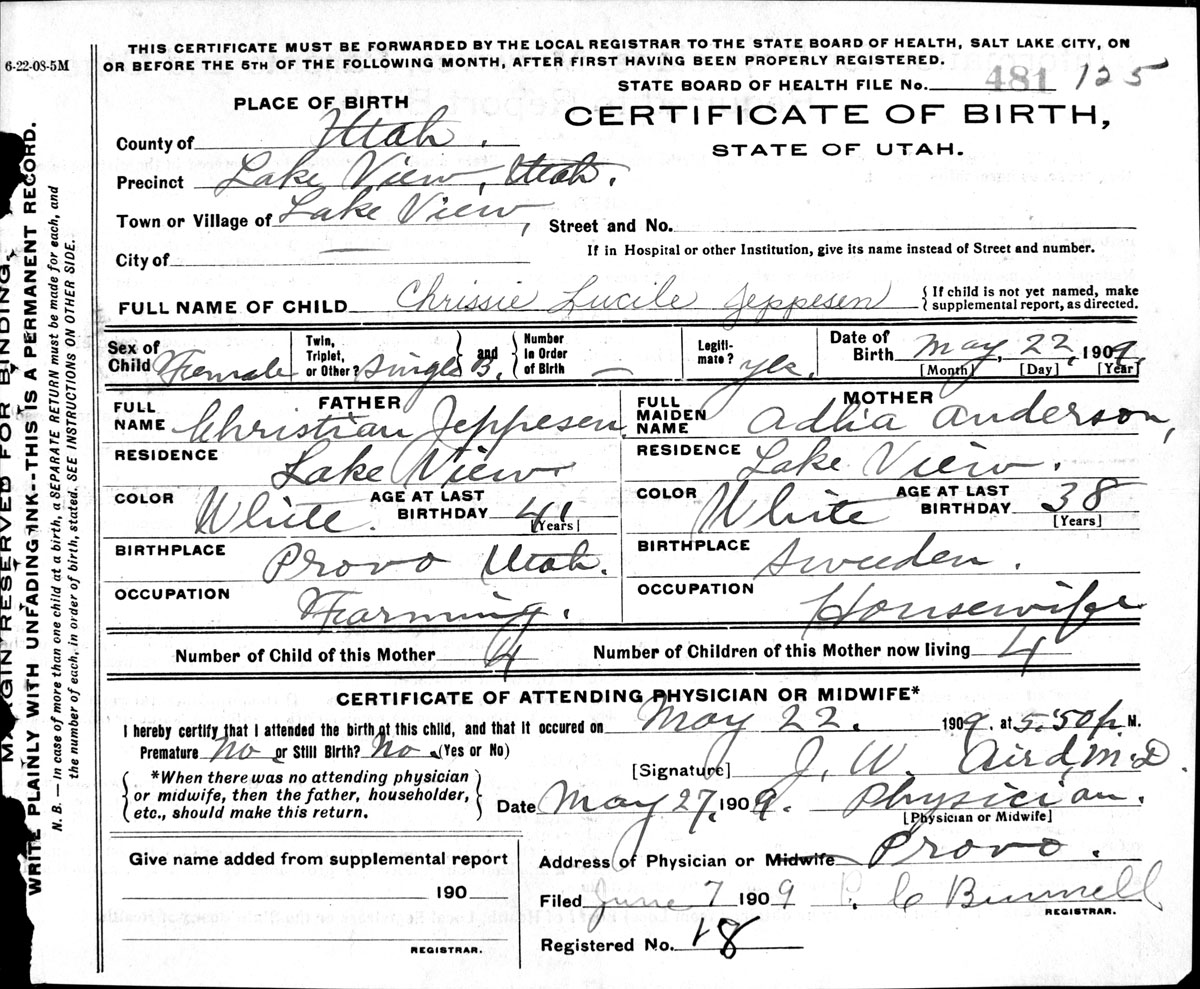 THIS CERTIFICATE MUST BE FORWARDED BY THE LOCAL REGISTRAR TO THE STATE BOARD OF HEALTH, SALT LAKE CITY, ON
6-22-08-5M
OR BEFORE THE 5TH OF THE FOLLOWING MONTH, AFTER FIRST HAVING BEEN PROPERLY REGISTERED.
STATE BOARD OF HEALTH FILE No. 481 125
PLACE OF BIRTH
CERTIFICATE OF BIRTH,
STATE OF UTAH.
County of Utah.
Precinct Lake View, Utah.
Town or Village of Lake View, Street and No.
If in Hospital or other Institution, give its name instead of Street and number.
City of
FULL NAME OF CHILD Chrissie Lucile Jeppesen
{If child is not yet named, make
supplemental report, as directed.
Sex of Child Female
Twin, Triplet, or Other? Single B. and
Number in Order of Birth —
Legitimate? yes.
Date of Birth May, 22, 1909.
[Month] [Day] [Year]
FATHER
FULL NAME Christian Jeppesen
RESIDENCE Lake View
COLOR White. AGE AT LAST BIRTHDAY 41
[Years]
BIRTHPLACE Provo Utah.
OCCUPATION Farming.
MOTHER
FULL MAIDEN NAME Adlia Anderson,
RESIDENCE Lake View.
COLOR White AGE AT LAST BIRTHDAY 38
[Years]
BIRTHPLACE Sweeden.
OCCUPATION Housewife
Number of Child of this Mother 4 Number of Children of this Mother now living 4
CERTIFICATE OF ATTENDING PHYSICIAN OR MIDWIFE*
I hereby certify that I attended the birth of this child, and that it occured on May 22. 1909. at 5:50 p. M.
Premature No or Still Birth? No. (Yes or No)
[Signature] J. W. Aird, M.D.
*When there was no attending physician
or midwife, then the father, householder,
etc., should make this return.
Date May 27, 1909. Physician.
[Physician or Midwife]
Address of Physician or Midwife Provo.
Give name added from supplemental report
190
REGISTRAR.
Filed June 7 1909 P. C Bunnell
REGISTRAR.
Registered No. 18
MARGIN RESERVED FOR BINDING.
WRITE PLAINLY WITH UNFADING INK--THIS IS A PERMANENT RECORD.
N. B. — In case of more than one child at a birth, a SEPARATE RETURN must be made for each, and
the number of each, in order of birth, stated. SEE INSTRUCTIONS ON OTHER SIDE.